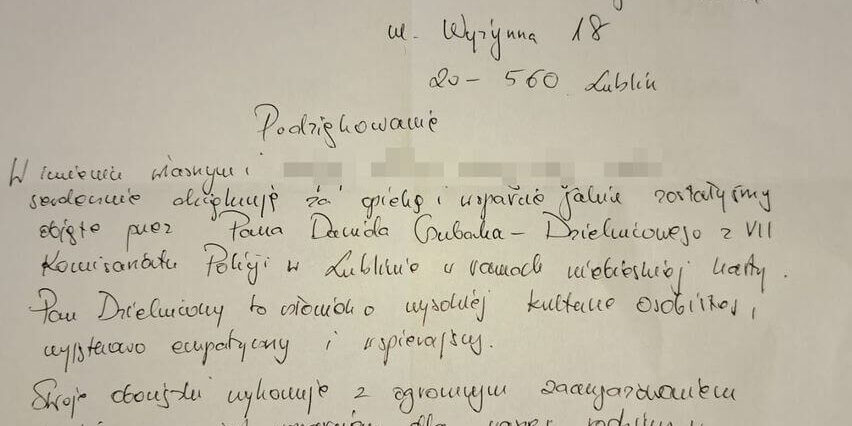 ul. Wyżynna 18
20-560 Lublin
Podziękowanie
W imieniu własnym i
serdecznie dziękuję za opiekę i wsparcie jakie zostałyśmy
objęte przez Pana Dawida Dzielnicowego z VII
Komisariatu Policji w Lublinie w ramach niebieskiej karty.
Pan Dzielnicowy to człowiek o wysokiej kulturze osobistej,
wyjątkowo empatyczny i wspierający.
Swoje obowiązki wykonuje z ogromnym zaangażowaniem
dla